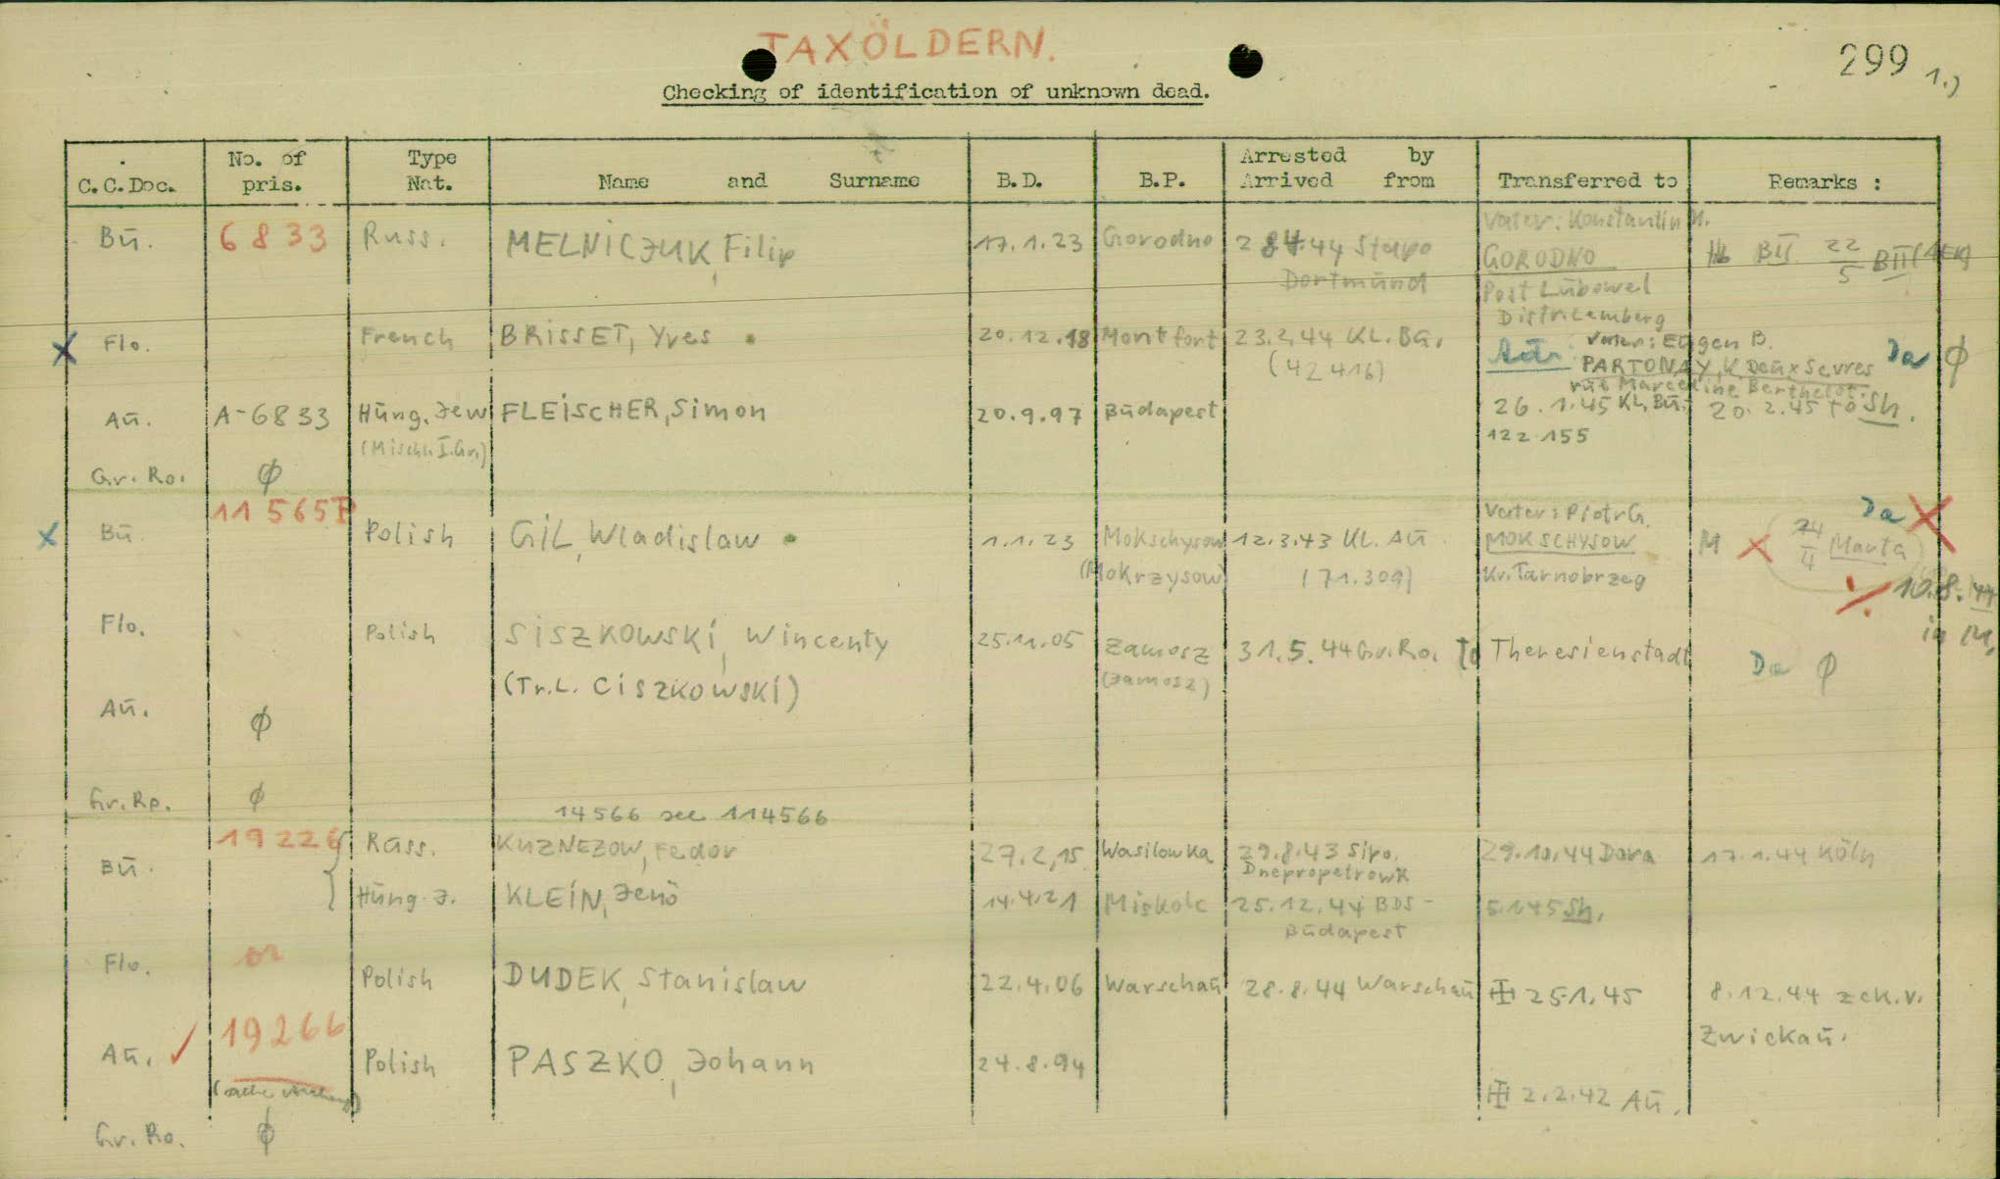 TAXÖLDERN.
299 1.)
Checking of identification of unknown dead.
C.C.Doc. No. of pris. Type Nat. Name and Surname B.D. B.P. Arrested by Arrived from Transferred to Remarks :
Vater: Konstantin M.
Bu. 6833 Russ. MELNICZUK, Filip 17.1.23 Gorodno 28.4.44 Stapo GORODNO BII 22/5 BII
Dortmund Post Lubowel
Distr. Lemberg
Vater: Eugen B.
X Flo. French BRISSET, Yves 20.12.18 Montfort 23.2.44 KL. Bu. Da ϕ
(42416) PARTONAY, K Deux Sevres
rue Marceline Berthelot.
Au. A-6833 Hung. Jew FLEISCHER, Simon 20.9.97 Budapest 26.1.45 KL. Bu. 20.2.45 to Sh.
(Mischl. I.Gr.) 122 155
Gr. Ro. ϕ
11565P Vater: Piotr G. Da X
X Bu. Polish GIL, Wladislaw 1.1.23 Mokschysow 12.3.43 KL. Au. MOKSCHYSOW M X 24/4
(Mokrzysow) (71.309) Kr. Tarnobrzeg
10.8.44
in M,
Flo. Polish SISZKOWSKI, Wincenty 25.11.05 Zamosz 31.5.44 Gr. Ro. To Theresienstadt Da ϕ
(Tr.L. CISZKOWSKI) (Jamosz)
Au. ϕ
Gr. Ro. ϕ
14566 see 114566
Bu. 19226 Russ. KUZNEZOW, Fedor 27.2.15 Wasilowka 29.8.43 Sipo. 29.10.44 Dora 17.1.44 Köln
Dnepropetrowk
Hung. J. KLEIN, Jenö 14.4.21 Miskolc 25.12.44 BDS- 5.1.45 Sh.
Budapest
Flo. or Polish DUDEK, Stanislaw 22.4.06 Warschau 28.8.44 Warschau 25.1.45 8.12.44 z ck.v.
Zwickau.
Au. ✓ 19266 Polish PASZKO, Johann 24.8.94
2.2.42 Au.
Gr. Ro. ϕ